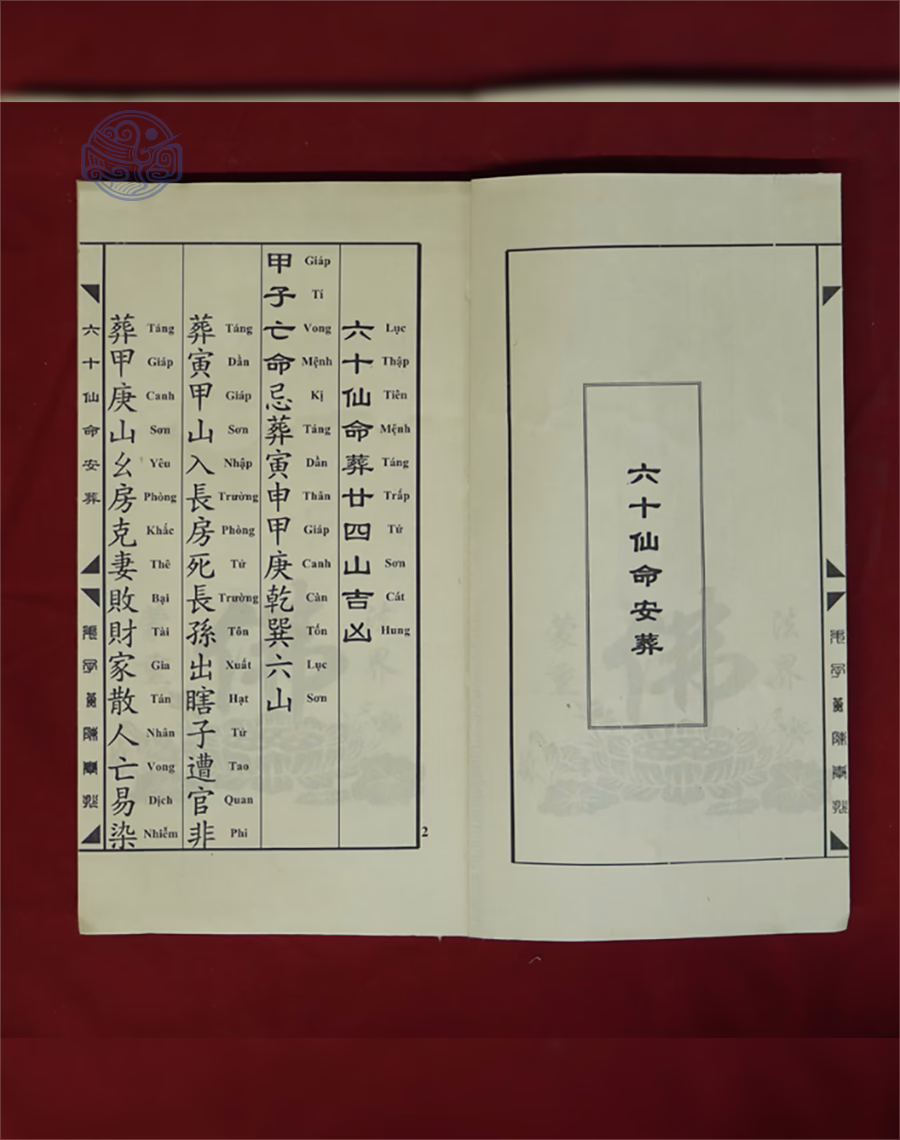 六十仙命安葬
六十仙命葬廿四山吉凶
Lục Thập Tiên Mệnh Táng Trấp Tứ Sơn Cát Hung
甲子亡命忌葬寅申甲庚乾巽六山
Giáp Tí Vong Mệnh Kị Táng Dần Thân Giáp Canh Càn Tốn Lục Sơn
葬寅甲山入長房死長孫出瞎子遭官非
Táng Dần Giáp Sơn Nhập Trường Phòng Tử Trường Tôn Xuất Hạt Tử Tao Quan Phi
葬甲庚山幺房克妻敗財家散人亡易染
Táng Giáp Canh Sơn Yêu Phòng Khắc Thê Bại Tài Gia Tán Nhân Vong Dịch Nhiễm
六十仙命安葬
2